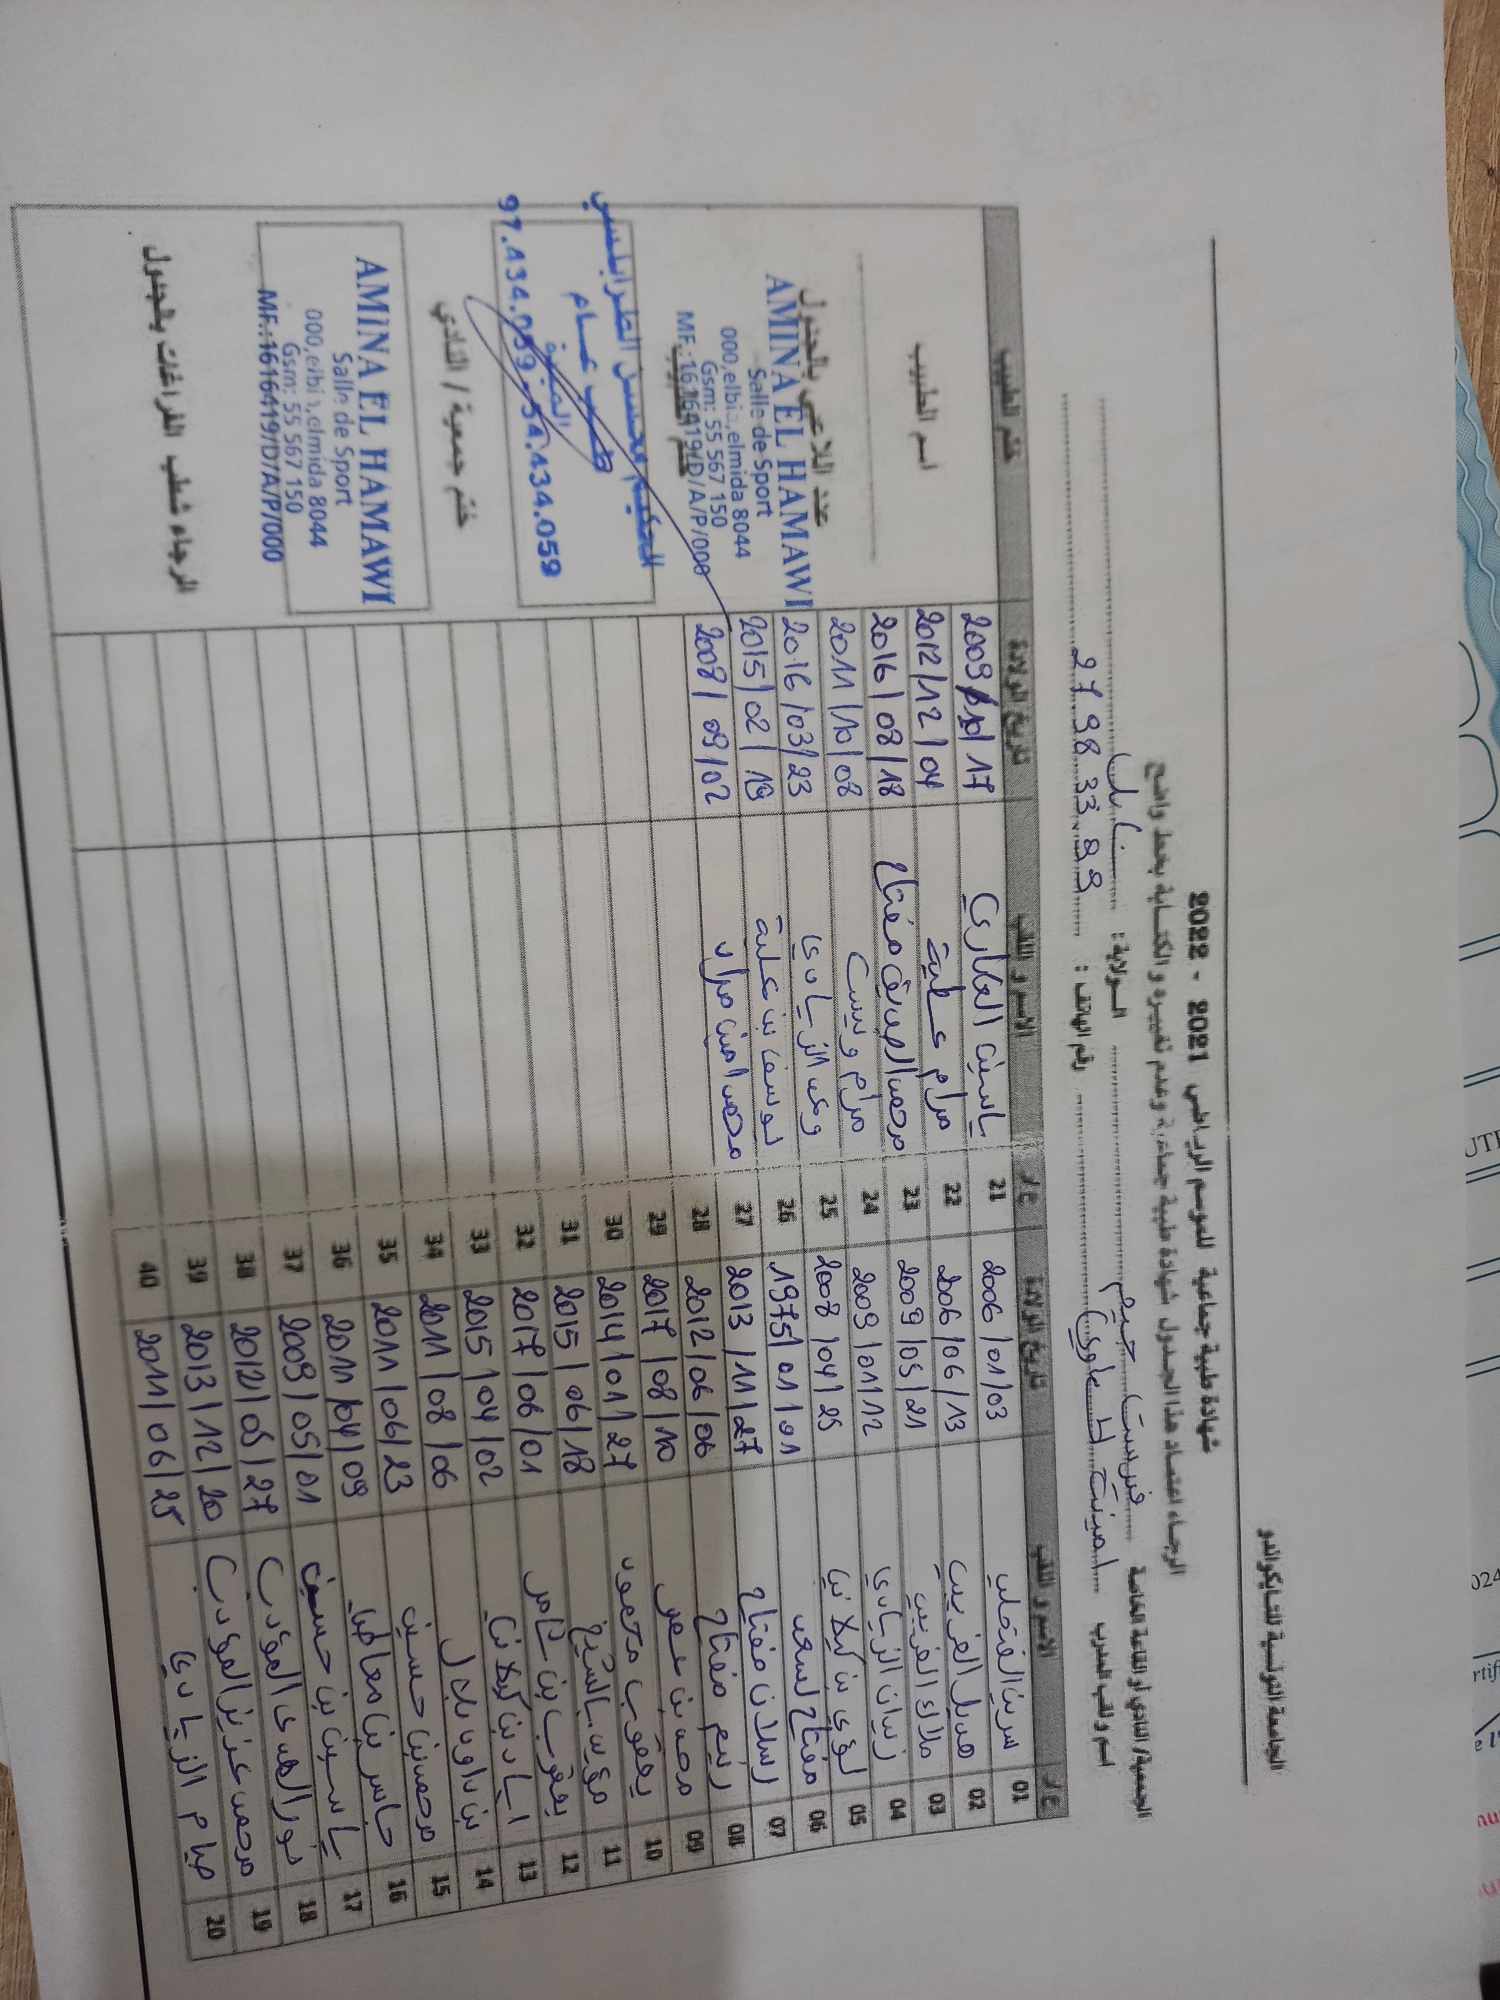 الجامعة التونسية للتايكواندو
شهادة طبية جماعية للموسم الرياضي 2021 - 2022
الرجاء اعتماد هذا الجدول شهادة طبية جماعية وعدم تغييره و الكتابة بخط واضح
الجمعية/ النادي أو القاعة الخاصة فرست جيم الولاية: نابل
اسم و لقب المدرب امينة الحماوي رقم الهاتف: 27 98 33 89
ع/د الاسم و اللقب تاريخ الولادة ع/د الاسم و اللقب تاريخ الولادة ختم الطبيب
01 2006/01/03 21 ياسين العكاري 2009/10/17
02 هديل الغريب 2006/06/13 22 مرام عطية 2012/12/04
03 ملاك الغريبي 2009/05/21 23 محمد الصديق مفتاح 2016/08/18
04 زينات الزيادي 2009/01/12 24 مرام ونيس 2011/10/08
05 لؤي بن كيلاني 2008/04/25 25 وعد الزيادي 2016/03/23
06 مفتاح لسعد 1975/01/01 26 يوسف بن علية 2015/02/19
07 رسلان مفتاح 2013/11/27 27 محمد امين مراد 2008/09/02
08 ريم مفتاح 2012/06/06 28
09 محمد بن عمر 2017/08/10 29
10 يعقوب محمود 2014/01/27 30
11 مؤيد بالشيخ 2015/06/18 31
12 يعقوب بن عامر 2017/06/01 32
13 اياد بن كيلاني 2015/04/02 33
14 بن داود بلال 2011/08/06 34
15 محمد بن حسين 2011/06/23 35
16 جاسر بن معاطيا 2011/04/09 36
17 ياسين بن حسين 2009/05/01 37
18 نور الهدى المؤدب 2012/05/27 38
19 محمد عزيز المؤدب 2013/12/20 39
20 هيام الزيادي 2011/06/25 40
اسم الطبيب
عدد اللاعبين بالجدول
AMINA EL HAMAWI
Salle de Sport
elmida 8044
Gsm: 55 567 150
MF.:1616419/D/A/P/000
الحكيم محسن الطرابلسي
طبيب عام
97.434.059-54.434.059
ختم جمعية / النادي
AMINA EL HAMAWI
Salle de Sport
elmida 8044
Gsm: 55 567 150
MF.:1616419/D/A/P/000
الرجاء شطب الفراغات بالجدول